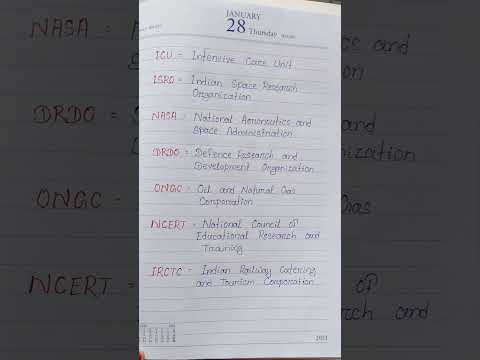 JANUARY
28 Thursday
ICU = Intensive Care Unit
ISRO = Indian Space Research
Organization
NASA = National Aeronautics and
Space Administration
DRDO = Defence Research and
Development Organization
ONGC = Oil and Natural Gas
Corporation
NCERT = National Council of
Educational Research and
Training
IRCTC = Indian Railway Catering
and Tourism Corporation
2021